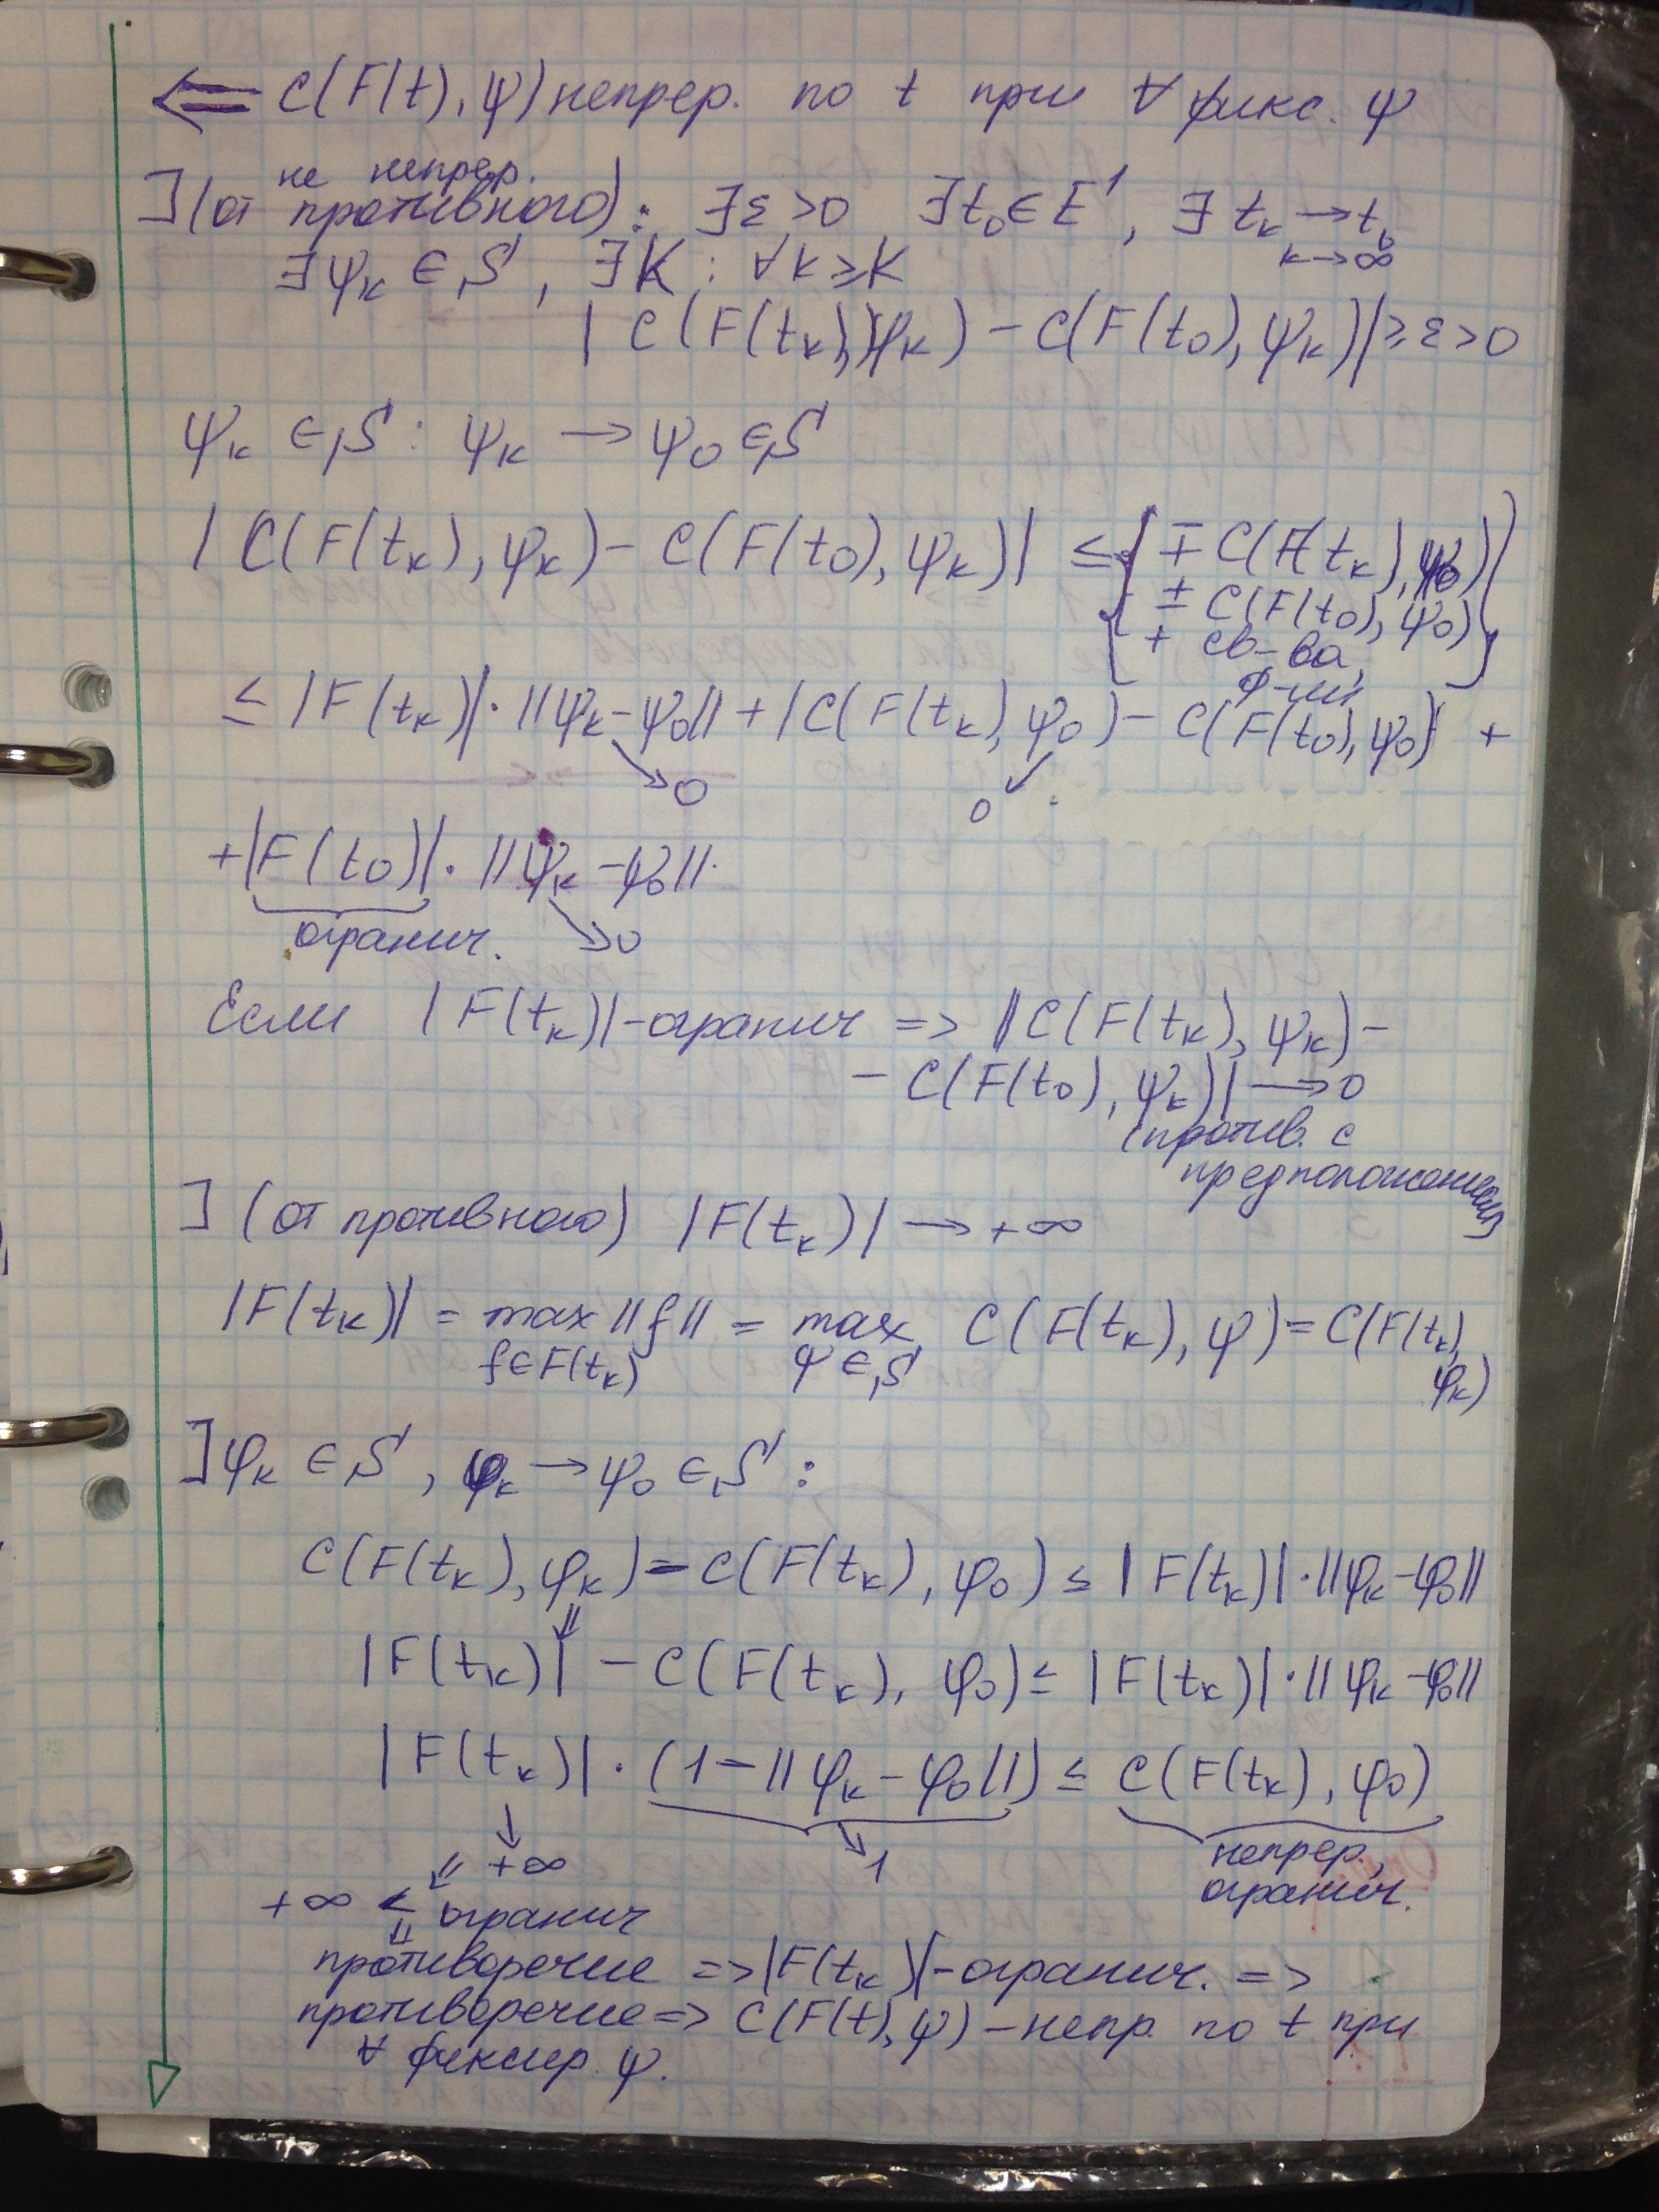 ⇐ C(F(t), ψ) непрер. по t при ∀ фикс. ψ
не непрер.
∃ (от противного): ∃ε>0 ∃t₀∈E¹, ∃ tₖ → t₀
k→∞
∃ψₖ ∈ S, ∃K : ∀k≥K
| C(F(tₖ), ψₖ) − C(F(t₀), ψₖ)| ≥ ε > 0
ψₖ ∈ S : ψₖ → ψ₀ ∈ S
| C(F(tₖ), ψₖ) − C(F(t₀), ψₖ)| ≤ { ∓ C(F(tₖ), ψ₀)
± C(F(t₀), ψ₀)
+ св-ва
ф-ции }
≤ |F(tₖ)|·||ψₖ−ψ₀|| + |C(F(tₖ), ψ₀) − C(F(t₀), ψ₀)| +
↘0 0↙
+|F(t₀)|·||ψₖ−ψ₀||
огранич. ↘0
Если |F(tₖ)|-огранич => ||C(F(tₖ), ψₖ) −
− C(F(t₀), ψₖ)| → 0
(против. с
предположением)
∃ (от противного) |F(tₖ)| → +∞
|F(tₖ)| = max ||f|| = max C(F(tₖ), ψ) = C(F(tₖ),
f∈F(tₖ) ψ∈S φₖ)
∃φₖ ∈ S, φₖ → φ₀ ∈ S :
C(F(tₖ), φₖ) − C(F(tₖ), φ₀) ≤ |F(tₖ)|·||φₖ−φ₀||
⇓
|F(tₖ)| − C(F(tₖ), φ₀) ≤ |F(tₖ)|·||φₖ−φ₀||
|F(tₖ)|·(1−||φₖ−φ₀||) ≤ C(F(tₖ), φ₀)
↓ ↘1 непрер.,
⇙ +∞ огранич.
+∞ < огранич
⇓
противоречие => |F(tₖ)|-огранич. =>
противоречие => C(F(t), ψ) − непр. по t при
∀ фиксир. ψ.